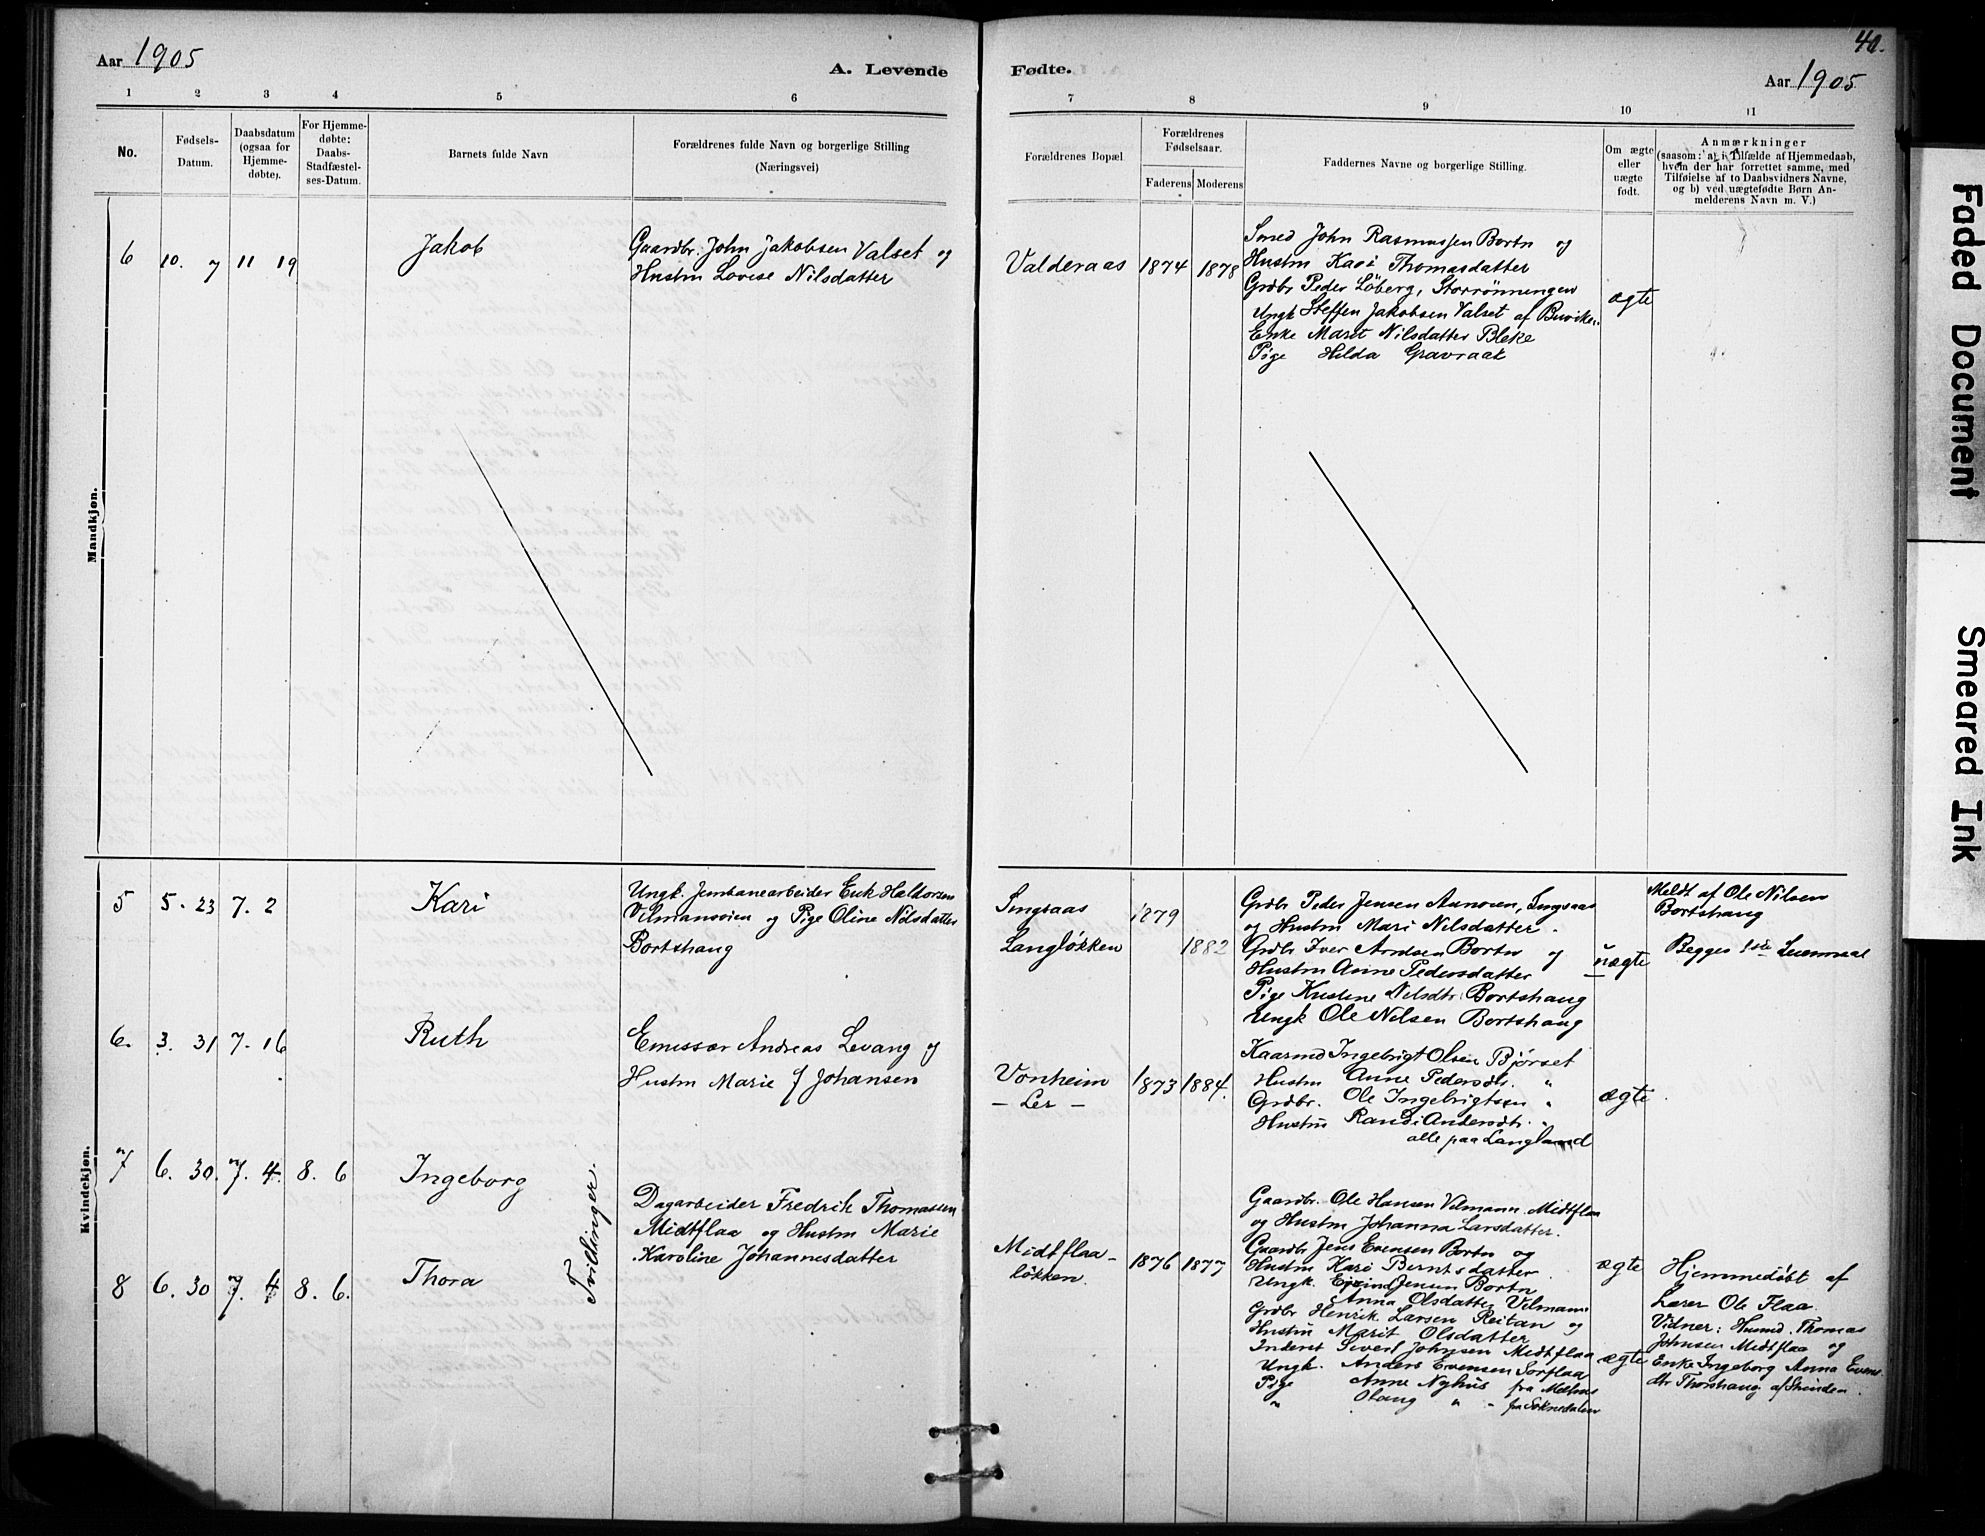 Aar 1905
A. Levende
Fødte.
Aar 1905
40.
1 2 3 4 5 6
7 8 9 10 11
No.
Fødsels-
Datum.
Daabsdatum
(ogsaa for
Hjemme-
døbte).
For Hjemme-
døbte:
Daabs-
Stadfæstel-
ses-Datum.
Barnets fulde Navn
Forældrenes fulde Navn og borgerlige Stilling
(Næringsvei)
Forældrenes Bopæl
Forældrenes
Fødselsaar.
Faderens
Moderens
Faddernes Navne og borgerlige Stilling.
Om ægte
eller
uægte
født.
Anmærkninger
(saasom: a) i Tilfælde af Hjemmedaab,
hvem der har forrettet samme, med
Tilføielse af to Daabsvidners Navne,
og b) ved uægtefødte Børn An-
melderens Navn m. V.)
Mandkjøn.
6 10. 7 11 19 Jakob
Gaardbr. John Jakobsen Valset og
Hustru Lovise Nilsdatter
Valderaas 1874 1878
Smed John Rasmussen Bortn og
Hustru Kari Thomasdatter
Grdbr Peder Løberg, Storrønningen
Ungk Steffen Jakobsen Valset af Buviken
Enke Marit Nilsdatter Bleke
Pige Hilda Gravraak
ægte
Kvindekjøn.
5 5. 23 7. 2 Kari
Ungk. Jernbanearbeider Erik Haldorsen
Vilmansøien og Pige Oline Nilsdatter
Bortshaug
Singsaas 1879
Langløkken 1882
Grdbr Peder Jensen Aunøien, Singsaas
og Hustru Mari Nilsdatter.
Grdbr Iver Arntsen Bortn og
Hustru Anne Pedersdatter
Pige Kristine Nilsdtr. Bortshaug
Ungk Ole Nilsen Bortshaug
uægte
Meldt af Ole Nilsen
Bortshaug
Begges 1ste Leiermaal
6. 3. 31 7. 16 Ruth
Emissær Andreas Levang og
Hustru Marie f Johansen
Vonheim
– Ler –
1873 1884.
Kaarmd Ingebrigt Olsen Bjørset
Hustru Anne Pedersdtr. "
Grdbr. Ole Ingebrigtsen "
Hustru Randi Andersdtr. "
alle paa Langland
ægte
7 6. 30. 7. 4. 8. 6 Ingeborg
8 6. 30 7. 4 8. 6. Thora
Tvillinger.
Dagarbeider Fredrik Thomassen
Midtflaa og Hustru Marie
Karoline Johannesdatter
Midtflaa-
løkken.
1876 1877
Gaardbr. Ole Hansen Vilmann Midtflaa
og Hustru Johanna Larsdatter.
Gaardb Jens Evensen Bortn og
Hustru Kari Berntsdatter
Ungk. Eivind Jensen Bortn
Anna Olsdatter Vilmann
Grdbr Henrik Larsen Reitan og
Hustru Marit Olsdatter
Inderst Sivert Johnsen Midtflaa
Ungk. Anders Evensen Sorflaa
Pige Anne Nyhus fra Melhus
" Olaug " " fra Soknedalen
ægte
ægte
Hjemmedøbt af
Lærer Ole Flaa.
Vidner: Husmd. Thomas
Johnsen Midtflaa og
Enke Ingeborg Anna Evens-
dtr Thorshaug af Strinden.
Faded Document
Smeared Ink